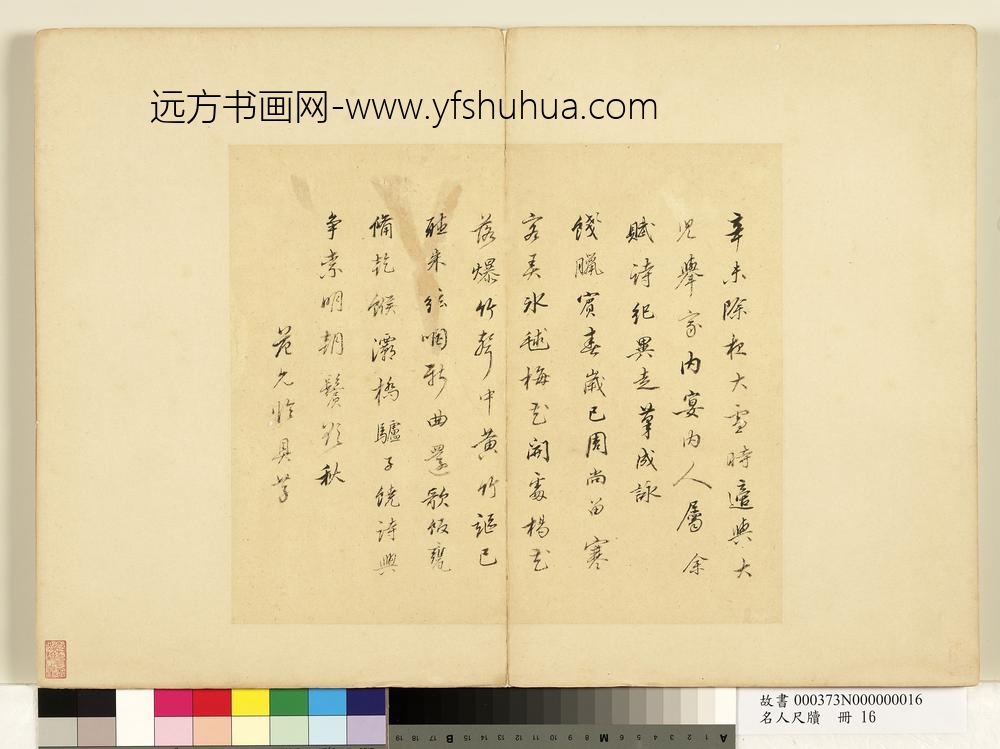 远方书画网-www.yfshuhua.com
辛未除夜大雪時適與大
兒舉家內宴內人屬余
賦詩紀異走筆成詠
餞臘賓春歲已周尚留寒
客弄冰毬梅花開處楊花
落爆竹聲中黃竹謳已
聽來絃咽新曲還歌飯甕
備乾餱灞橋驢子饒詩興
爭索明朝鬢欲秋
范允臨具草
故書 000373N000000016
名人尺牘 冊 16